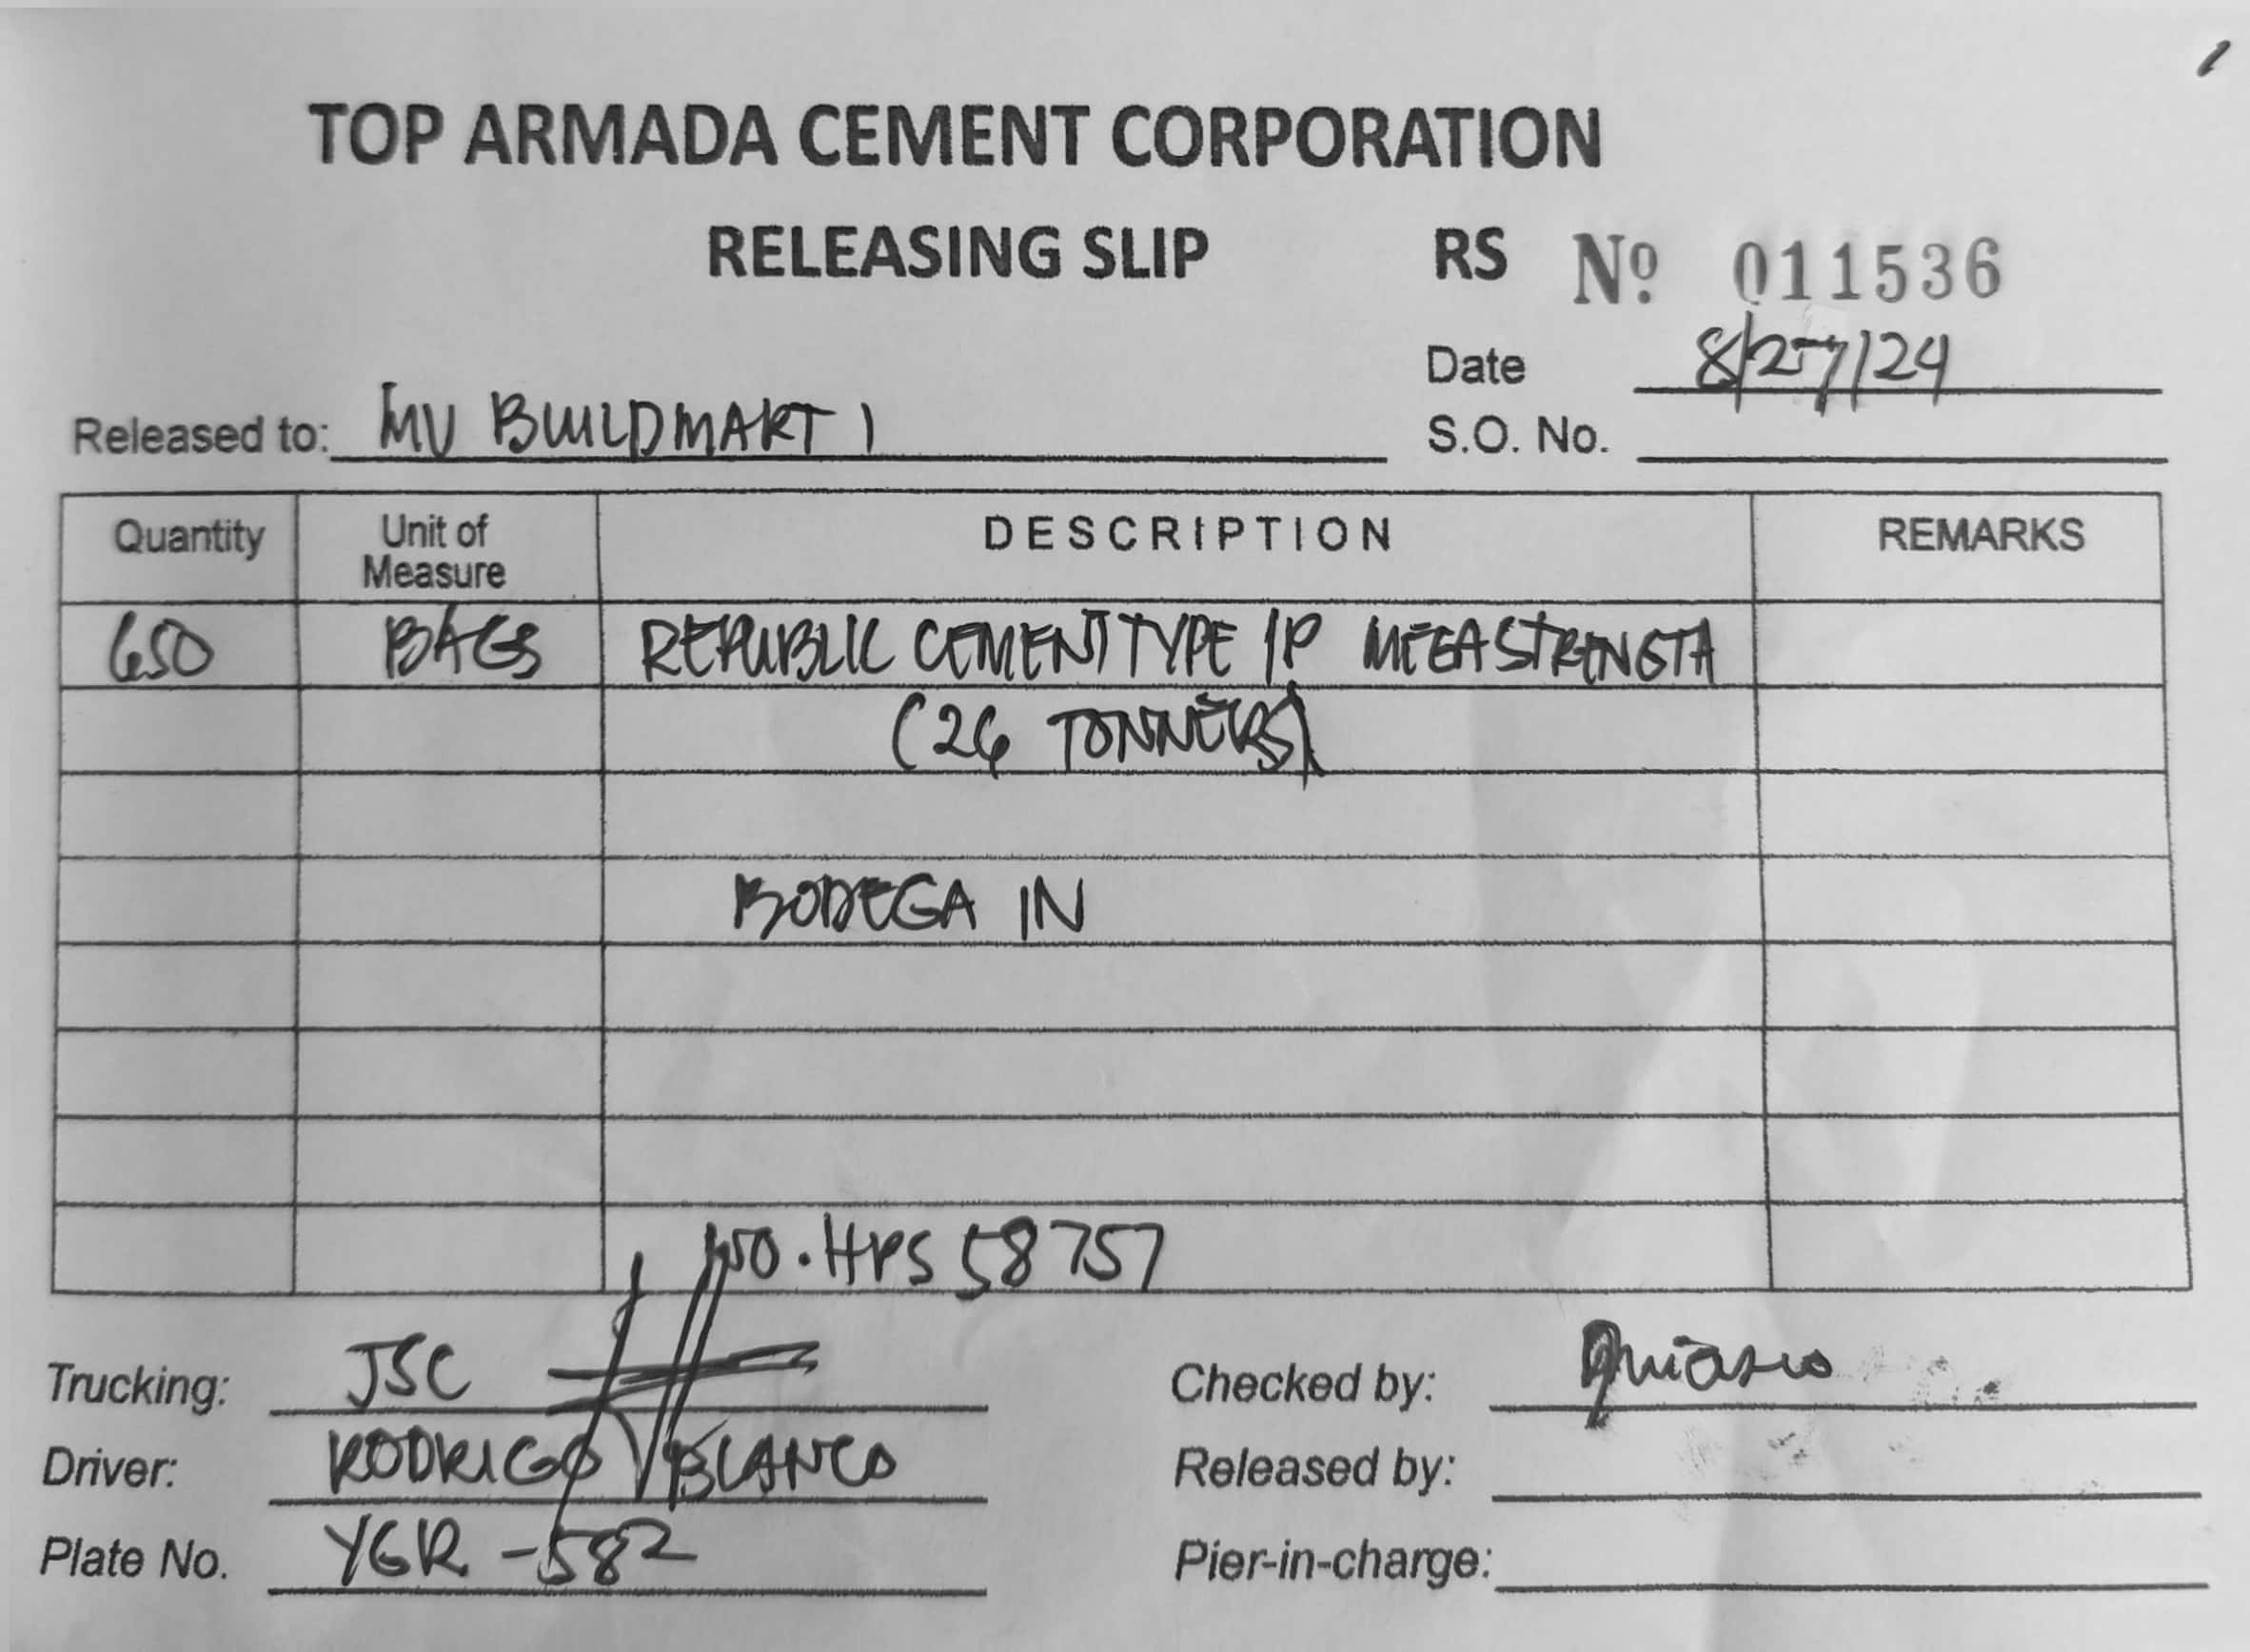 TOP ARMADA CEMENT CORPORATION
RELEASING SLIP RS Nº 011536
Date 8/27/24
Released to: MV BUILDMART 1
S.O. No.
Quantity Unit of Measure DESCRIPTION REMARKS
650 BAGS REPUBLIC CEMENT TYPE 1P MEGASTRENGTH
(26 TONNERS)
BODEGA IN
NO. HPS 58757
Trucking: JSC Checked by:
Driver: RODRIGO BLANCO Released by:
Plate No. YGR-582 Pier-in-charge: